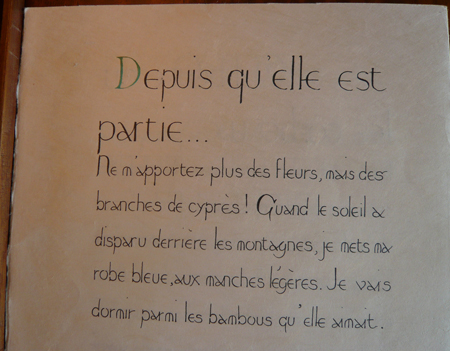 Depuis qu'elle est
partie...
Ne m'apportez plus des fleurs, mais des
branches de cyprès ! Quand le soleil a
disparu derrière les montagnes, je mets ma
robe bleue, aux manches légères. Je vais
dormir parmi les bambous qu'elle aimait.